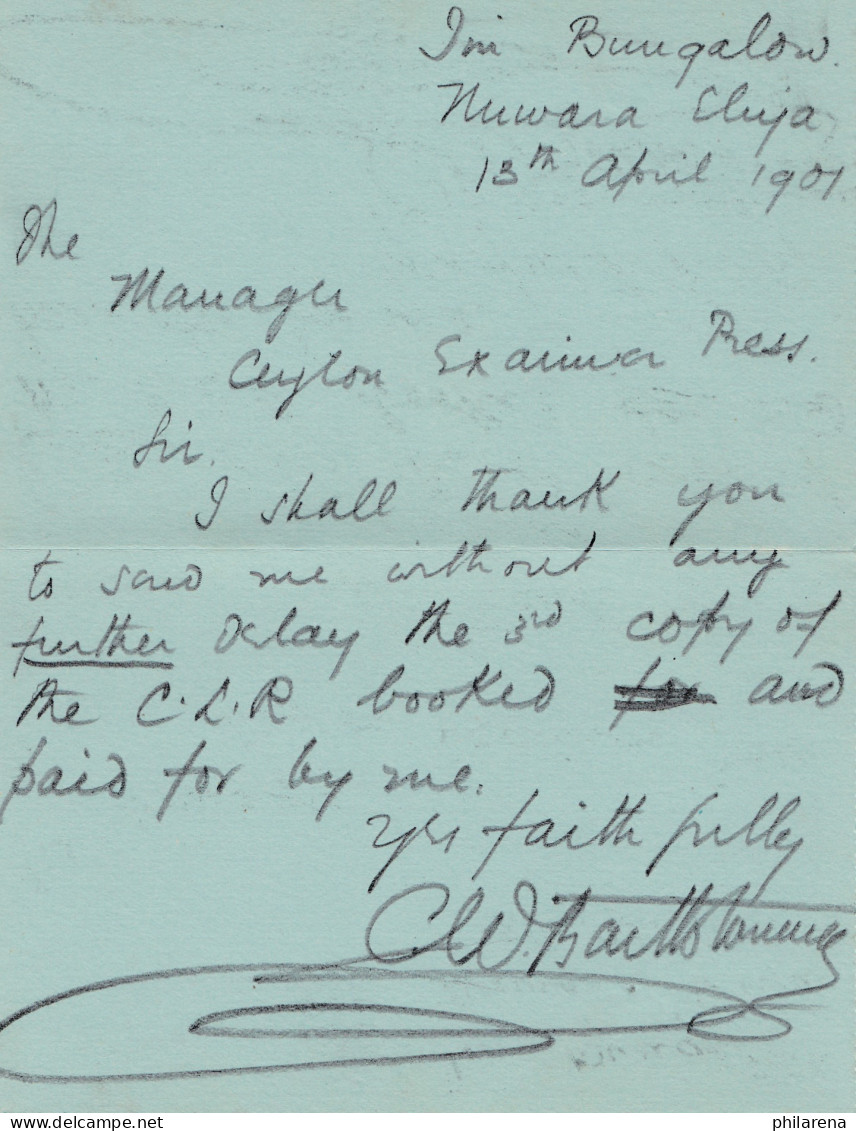 Bungalow.
Nuwara Eliya
13th April 1901
The
Manager
Ceylon Examiner Press.
Sir.
I shall thank you
to send me without any
further delay the 3rd copy of
the C.L.R booked for and
paid for by me.
Yrs faithfully
philarena